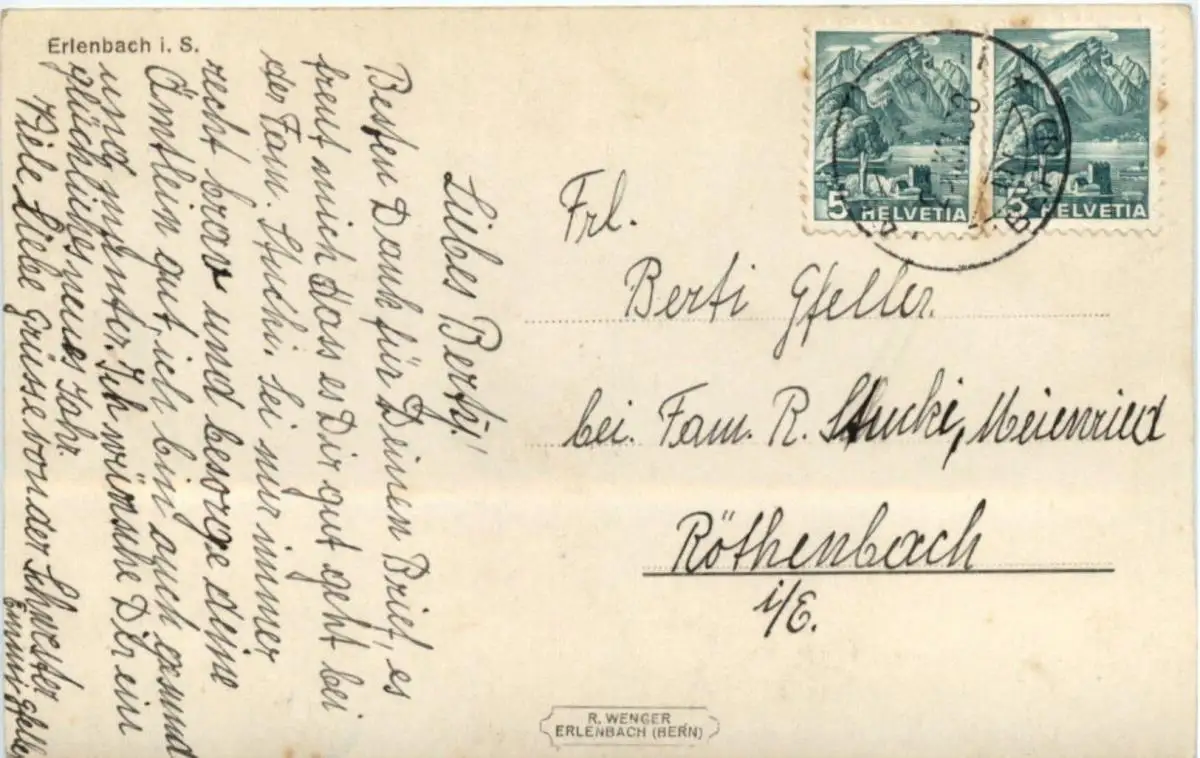 Erlenbach i. S.
Liebes Berty!
Besten Dank für Deinen Brief, es
freut mich dass es Dir gut geht bei
der Fam. Stucki. Sei nur immer
recht brav und besorge deine
Ämtlein gut, ich bin auch gesund
und munter. Ich wünsche Dir ein
glückliches neues Jahr.
Viele Liebe Grüsse von der Schwester
Emmi Gfeller
5 HELVETIA
5 HELVETIA
Frl.
Berti Gfeller.
bei. Fam. R. Stucki, Meienried
Röthenbach
i/E.
R. WENGER
ERLENBACH (BERN)